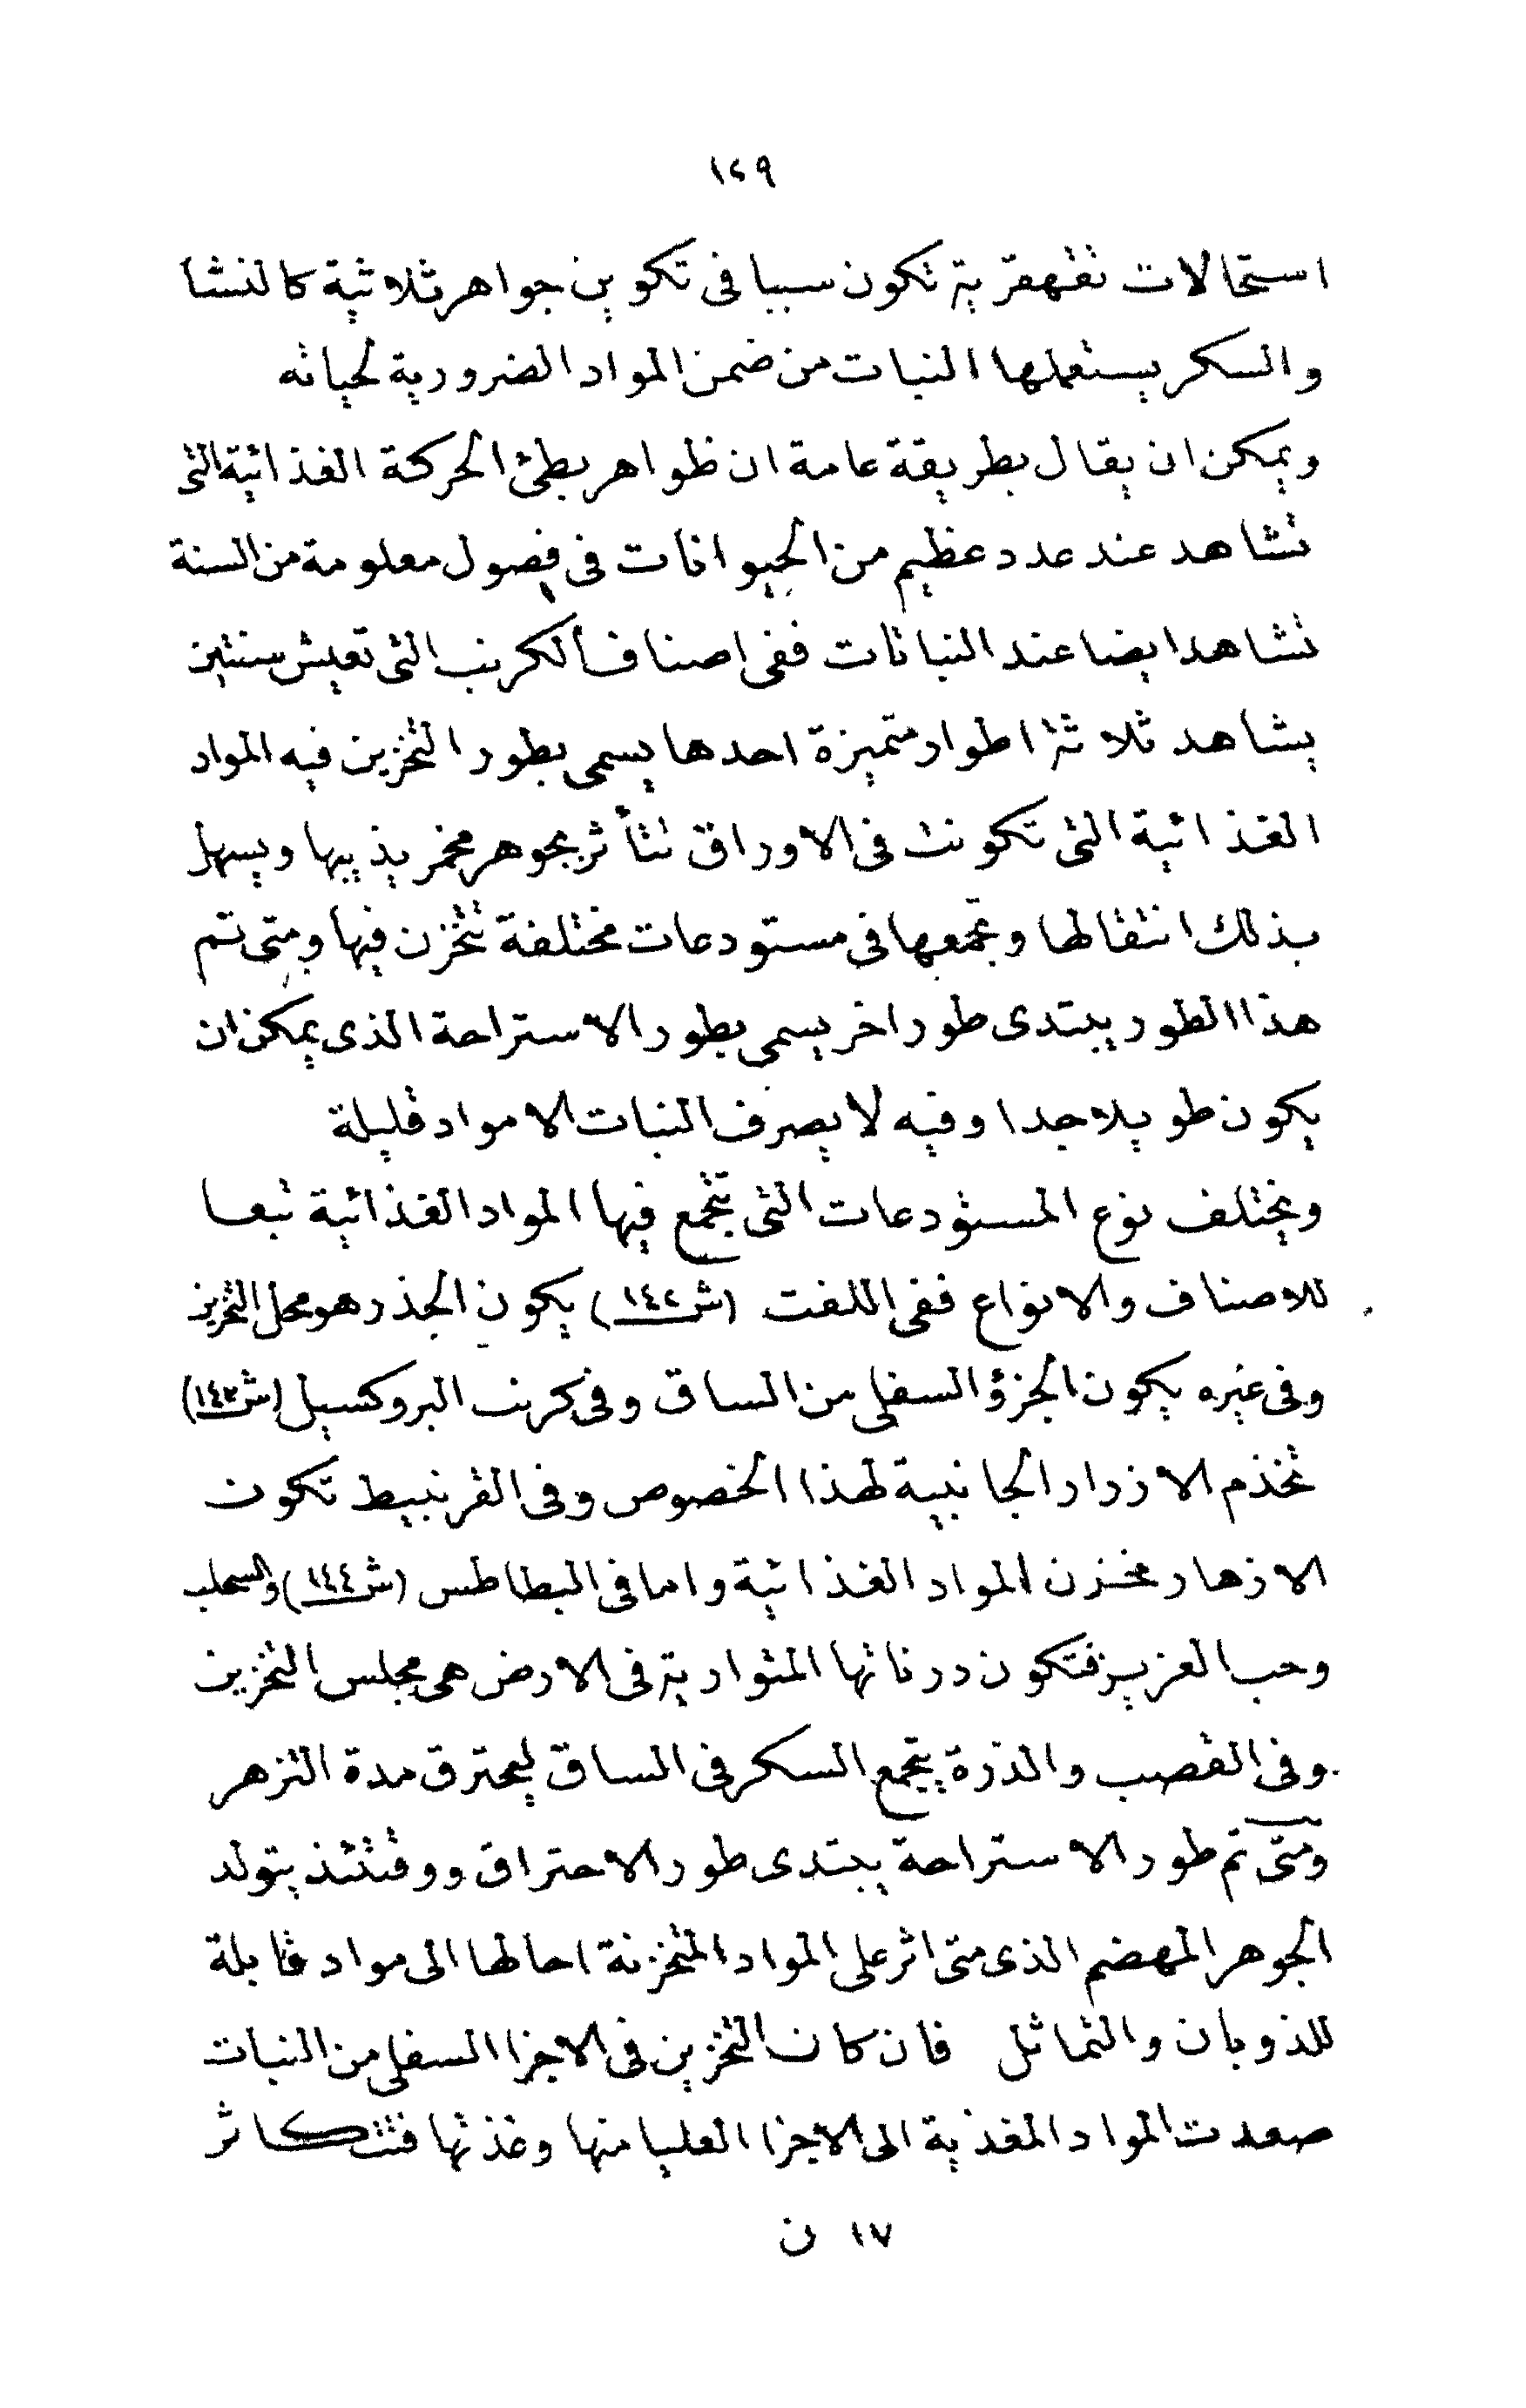 ١٢٩
استحالات تقهقرية تكون سببا فى تكوين جواهر ثلاثية كالنشا
والسكر يستعملها النبات من ضمن المواد الضرورية لحياته
ويمكن ان يقال بطريقة عامة ان ظواهر بطئ الحركة الغذائية التى
تشاهد عند عدد عظيم من الحيوانات فى فصول معلومة من السنة
تشاهد ايضا عند النباتات ففى اصناف الكرنب التى تعيش سنتين
يشاهد ثلاثة اطوار متميزة احدها يسمى بطور التخزين فيه المواد
الغذائية التى تكونت فى الاوراق تتأثر بجوهر مخمر يذيبها ويسهل
بذلك انتقالها وتجمعها فى مستودعات مختلفة تتخزن فيها ومتى تم
هذا الطور يبتدى طور اخر يسمى بطور الاستراحة الذى يمكن ان
يكون طويلا جدا وفيه لا يصرف النبات الا مواد قليلة
ويختلف نوع المستودعات التى تتجمع فيها المواد الغذائية تبعا
للاصناف والانواع ففى اللفت (ش ١٤٢) يكون الجذر هو محل التخزين
وفى غيره يكون الجزؤ السفلى من الساق وفى كرنب البروكسيل (ش ١٤٣)
تخذم الازرار الجانبية لهذا الخصوص وفى القرنبيط تكون
الازهار مخزن المواد الغذائية واما فى البطاطس (ش ١٤٤) والسحلب
وحب العزيز فتكون درناتها المتوارية فى الارض هى مجلس التخزين
وفى القصب والذرة يتجمع السكر فى الساق ليحترق مدة التزهر
ومتى تم طور الاستراحة يبتدى طور الاحتراق ووقتئذ يتولد
الجوهر المهضم الذى متى اثر على المواد المتخزنة احالها الى مواد قابلة
للذوبان والتماثل فان كان التخزين فى الاجزا السفلى من النبات
صعدت المواد المغذية الى الاجزا العليا منها وغذتها فتتكاثر
١٧ ن